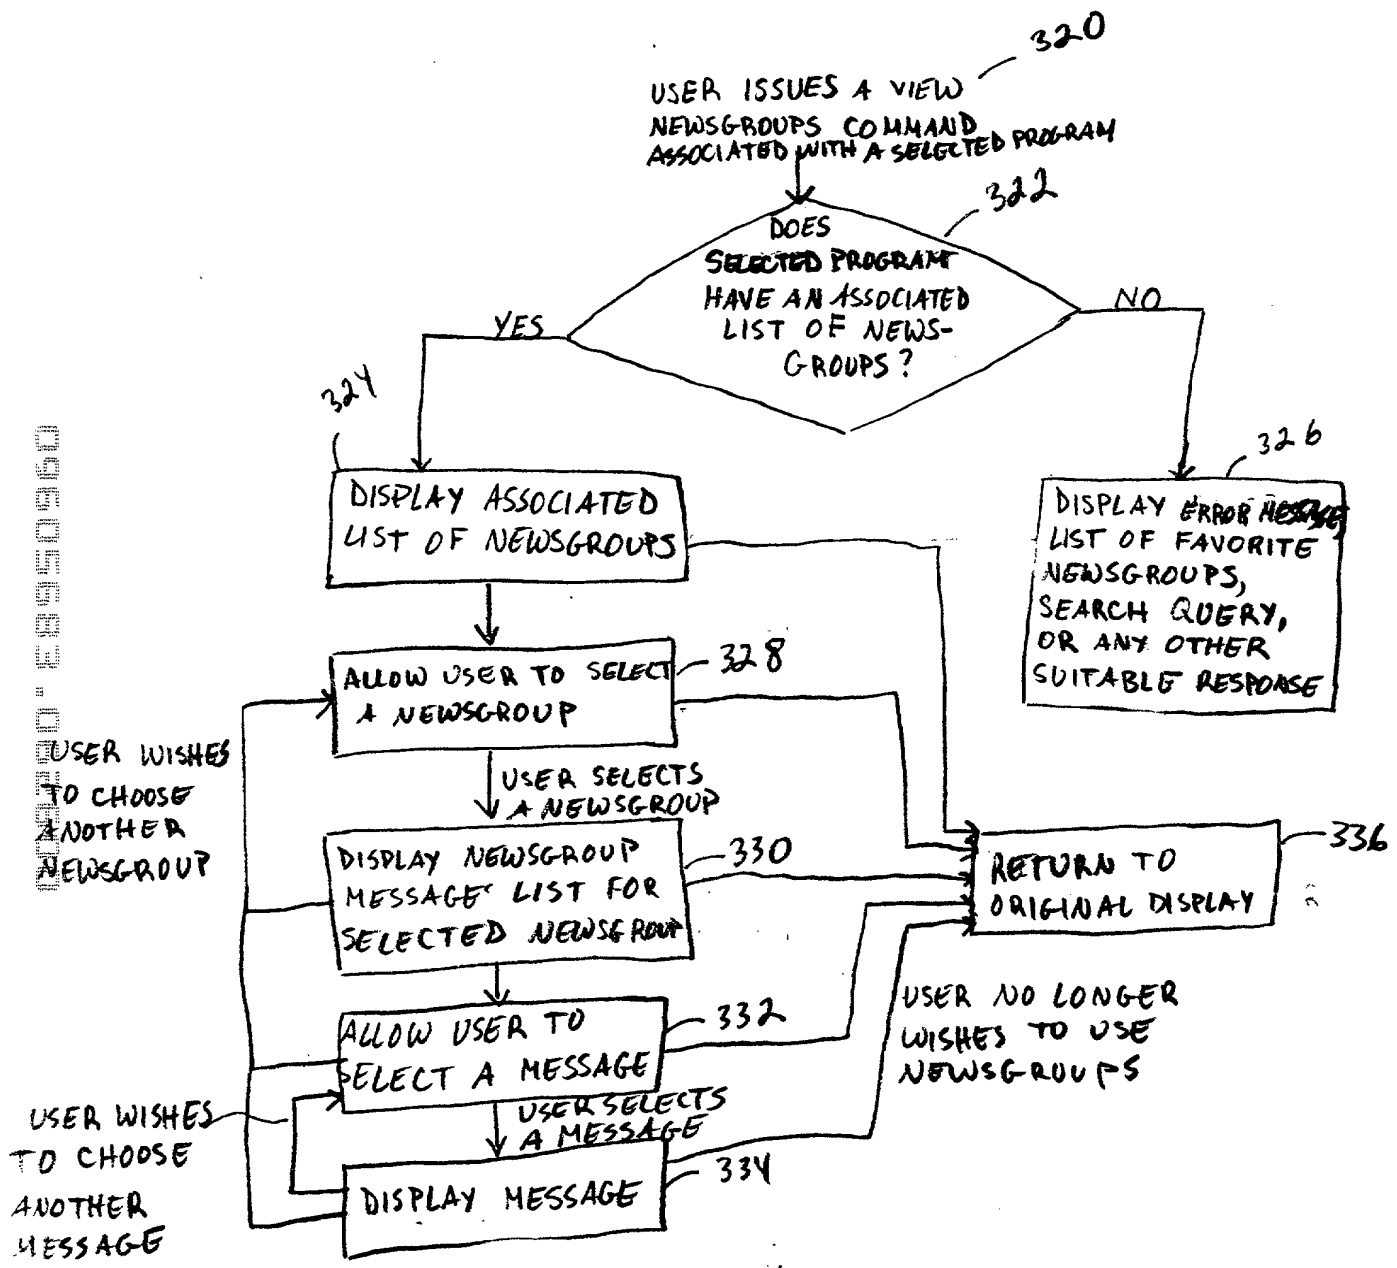 320
USER ISSUES A VIEW
NEWSGROUPS COMMAND
ASSOCIATED WITH A SELECTED PROGRAM
322
DOES
SELECTED PROGRAM
HAVE AN ASSOCIATED
LIST OF NEWS-
GROUPS?
YES
NO
324
DISPLAY ASSOCIATED
LIST OF NEWSGROUPS
326
DISPLAY ERROR MESSAGE,
LIST OF FAVORITE
NEWSGROUPS,
SEARCH QUERY,
OR ANY OTHER
SUITABLE RESPONSE
328
ALLOW USER TO SELECT
A NEWSGROUP
USER WISHES
TO CHOOSE
ANOTHER
NEWSGROUP
USER SELECTS
A NEWSGROUP
330
DISPLAY NEWSGROUP
MESSAGE LIST FOR
SELECTED NEWSGROUP
336
RETURN TO
ORIGINAL DISPLAY
332
ALLOW USER TO
SELECT A MESSAGE
USER NO LONGER
WISHES TO USE
NEWSGROUPS
USER WISHES
TO CHOOSE
ANOTHER
MESSAGE
USER SELECTS
A MESSAGE
334
DISPLAY MESSAGE